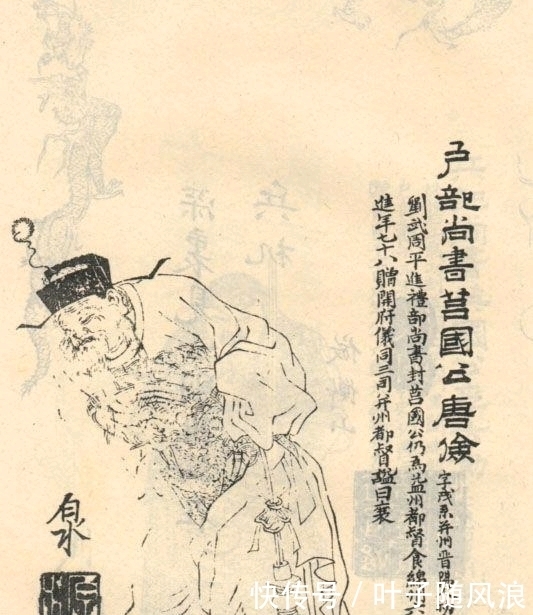 户部尚書莒國公唐儉
字茂系并州晋陽
劉武周平進禮部尚書封莒國公仍為益州都督食綿
進年七十八贈開府儀同三司并州都督謚曰襄
兵机
白水
快传号/叶子随风浪